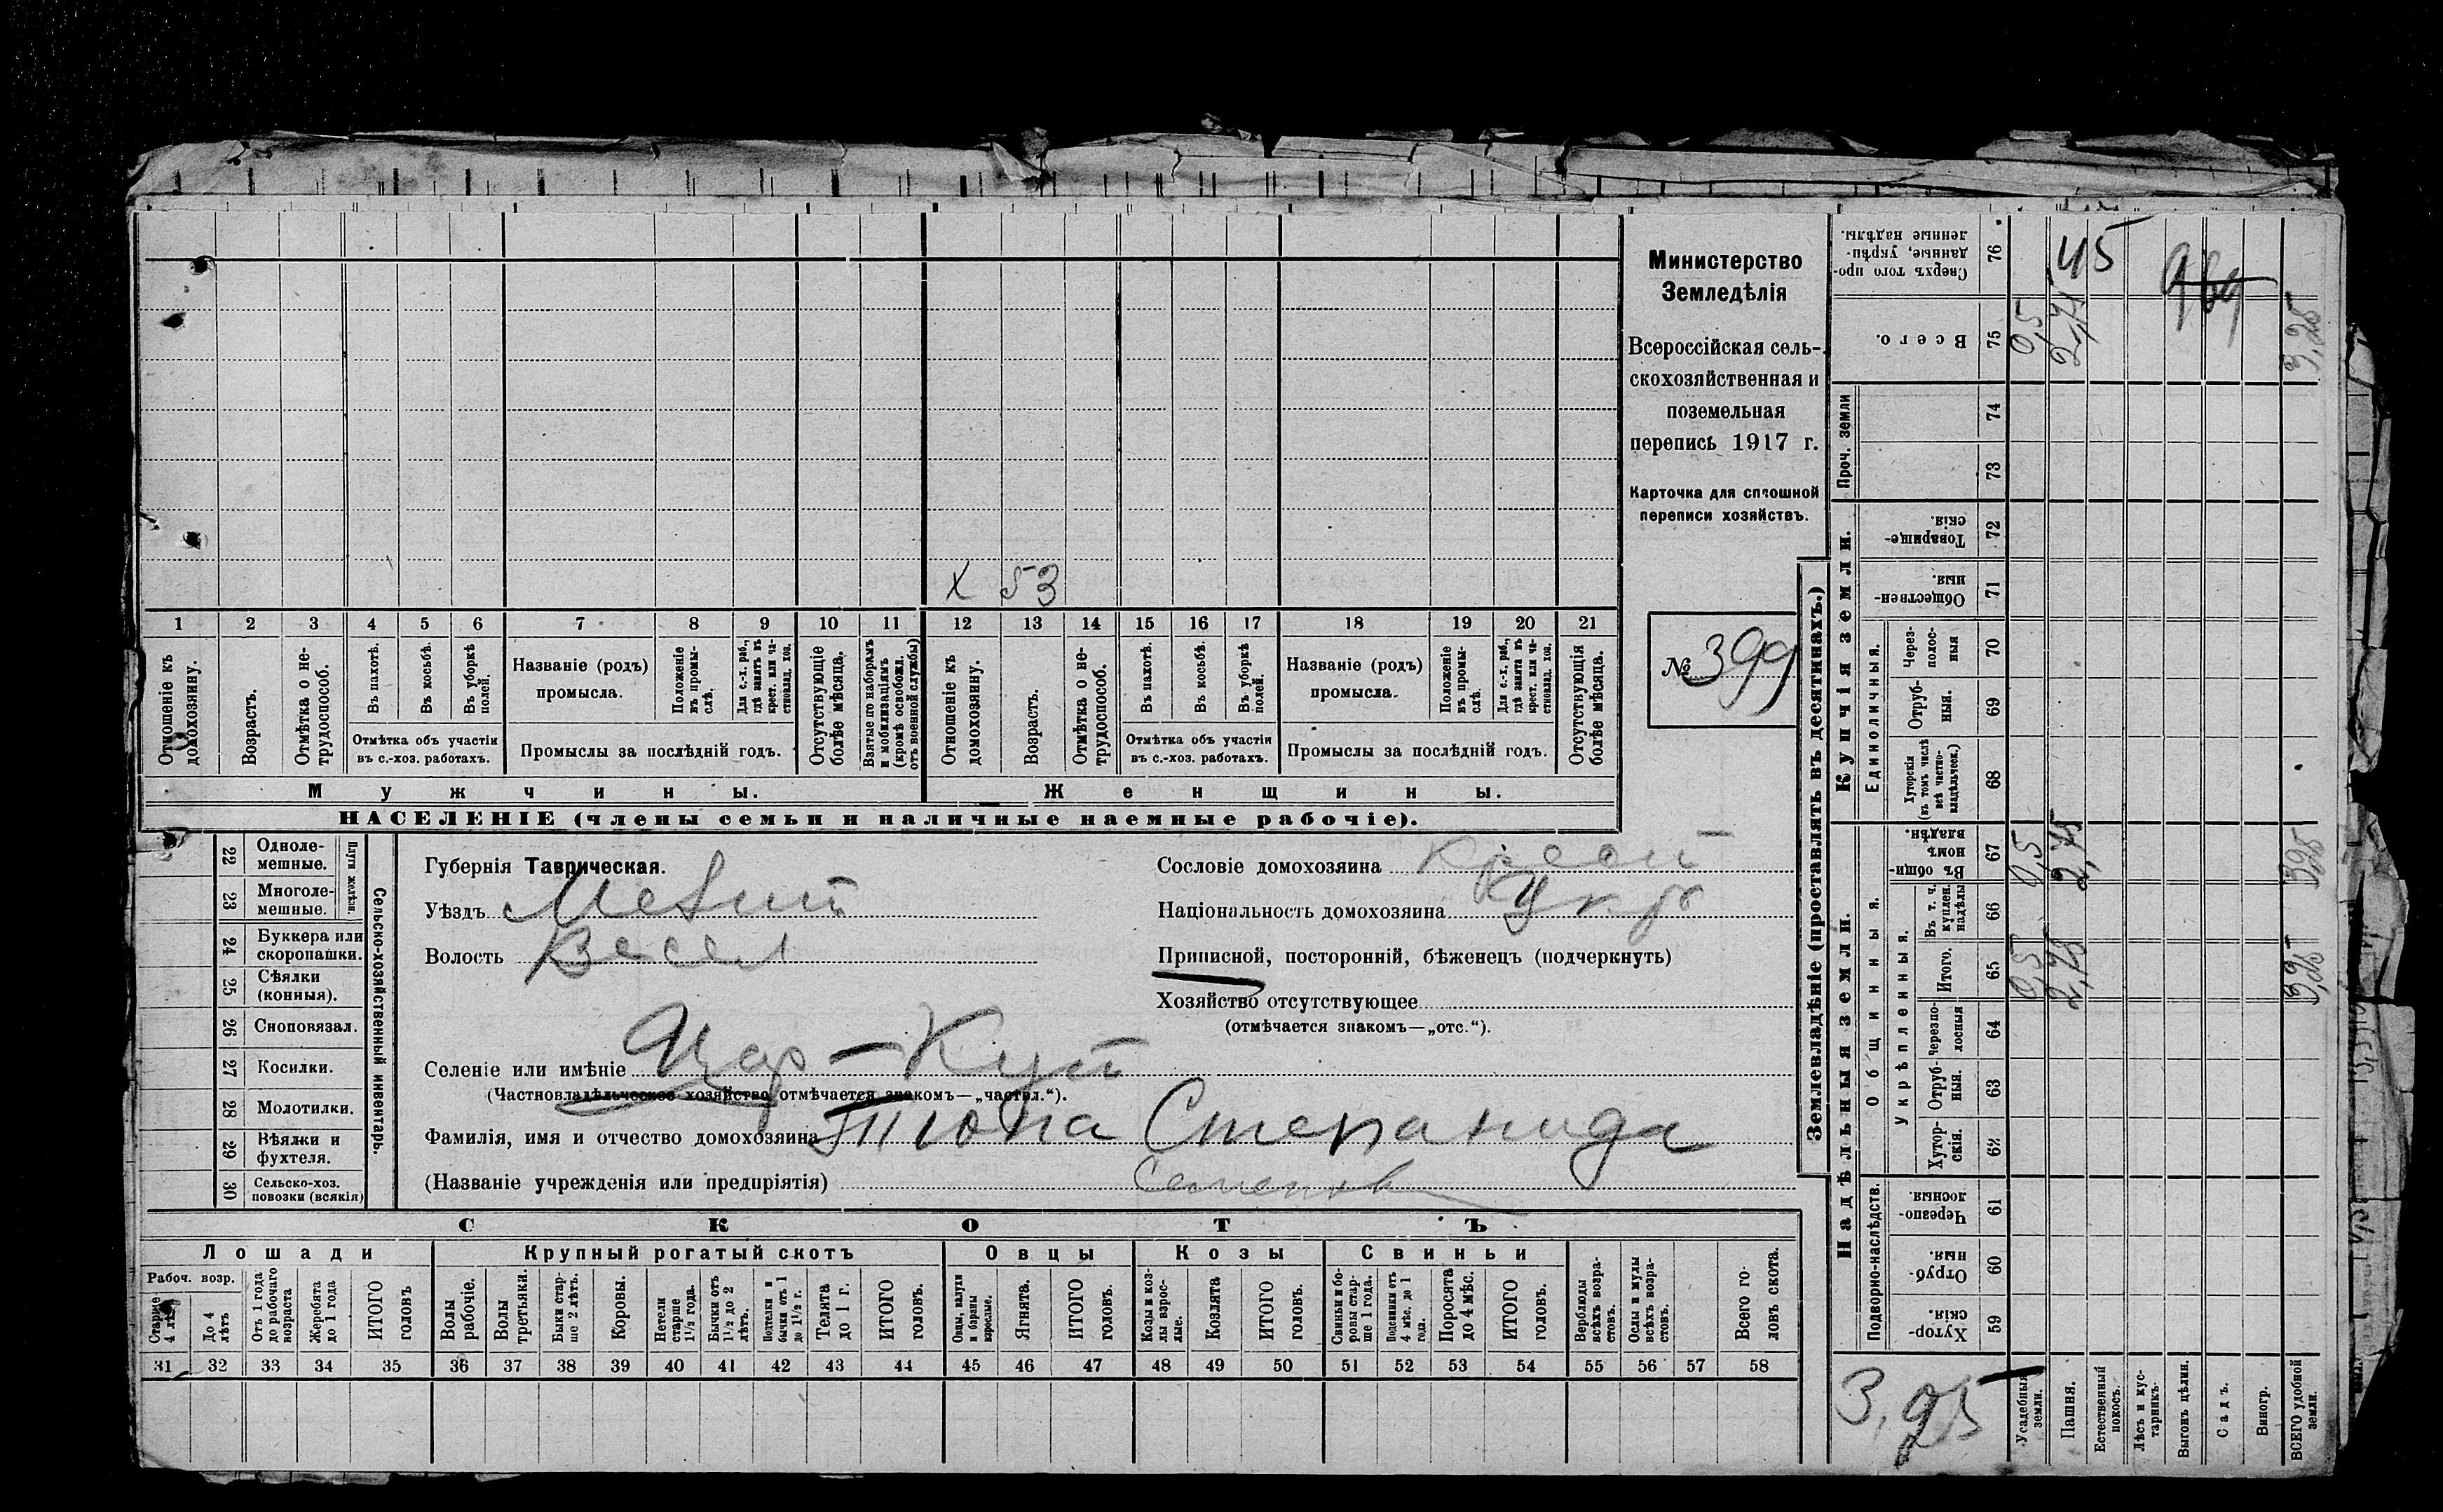 Министерство
Земледѣлія
Всероссійская сель-
скохозяйственная и
поземельная
перепись 1917 г.
Карточка для сплошной
переписи хозяйствъ.
№ 399
х 53
1 2 3 4 5 6 7 8 9 10 11 12 13 14 15 16 17 18 19 20 21
Отношеніе къ домохозяину.
Возрастъ.
Отмѣтка о не-трудоспособ.
Въ пахотѣ.
Въ косьбѣ.
Въ уборкѣ полей.
Отмѣтка объ участіи
въ с.-хоз. работахъ.
Названіе (родъ)
промысла.
Положеніе въ промы-слѣ.
Для с.-х. раб., гдѣ занятъ въ крест. или ча-стновлад. хоз.
Промыслы за послѣдній годъ.
Отсутствующіе болѣе мѣсяца.
Взятые по наборамъ и мобилизаціямъ (кромѣ освобожд. отъ военной службы)
Отношеніе къ домохозяину.
Возрастъ.
Отмѣтка о не-трудоспособ.
Въ пахотѣ.
Въ косьбѣ.
Въ уборкѣ полей.
Отмѣтка объ участіи
въ с.-хоз. работахъ.
Названіе (родъ)
промысла.
Положеніе въ промы-слѣ.
Для с.-х. раб., гдѣ занята въ крест. или ча-стновлад. хоз.
Промыслы за послѣдній годъ.
Отсутствующія болѣе мѣсяца.
Мужчины.
Женщины.
НАСЕЛЕНІЕ (члены семьи и наличные наемные рабочіе).
22 Одноле-мешные.
23 Многоле-мешные.
Плуги желѣзн.
24 Буккера или скоропашки.
25 Сѣялки (конныя).
26 Сноповязал.
27 Косилки.
28 Молотилки.
29 Вѣялки и фухтеля.
30 Сельско-хоз. повозки (всякія)
Сельско-хозяйственный инвентарь.
Губернія Таврическая.
Уѣздъ Мелит
Волость Весел
Селеніе или имѣніе
(Частновладѣльческое хозяйство отмѣчается знакомъ—„частвл.“).
Фамилія, имя и отчество домохозяина Тюпа Степанида
(Названіе учрежденія или предпріятія) Семенов
Сословіе домохозяина крест
Національность домохозяина Укр
Приписной, посторонній, бѣженецъ (подчеркнуть)
Хозяйство отсутствующее
(отмѣчается знакомъ—„отс.“).
СКОТЪ
Лошади
Крупный рогатый скотъ
Овцы
Козы
Свиньи
Рабоч. возр.
Старше 4 лѣтъ
До 4 лѣтъ
Отъ 1 года до рабочаго возраста
Жеребята до 1 года
ИТОГО головъ
Волы рабочіе.
Волы третьяки.
Быки стар-ше 2 лѣтъ.
Коровы.
Нетели старше 1½ года.
Бычки отъ 1½ до 2 лѣтъ.
Подтелки и бычки отъ 1 до 1½ г.
Телята до 1 г.
ИТОГО головъ.
Овцы, валухи и бараны взрослые.
Ягнята.
ИТОГО головъ.
Козы и коз-лы взрос-лые.
Козлята
ИТОГО головъ.
Свиньи и бо-ровы стар-ше 1 года.
Подсвинки отъ 4 мѣс. до 1 года.
Поросята до 4 мѣс.
ИТОГО головъ.
Верблюды всѣхъ возра-стовъ.
Ослы и мулы всѣхъ возра-стовъ.
Всего го-ловъ скота.
31 32 33 34 35 36 37 38 39 40 41 42 43 44 45 46 47 48 49 50 51 52 53 54 55 56 57 58
Землевладѣніе (проставлять въ десятинахъ.)
Надѣльныя земли.
Купчія земли.
Проч. земли
Подворно-наслѣдств.
Общинныя.
Укрѣпленныя.
Единоличныя.
Сверхъ того про-данные, укрѣп-ленные надѣлы. 76 45
Всего. 75 0,5 2,75 3,25
74
73
Товарище-скія. 72
Обществен-ныя. 71
Через-полос-ныя 70
Отруб-ныя. 69
Хуторскія (въ томъ числѣ всѣ частно-владѣльческ.) 68
Въ общин-номъ владѣн. 67 0,5 2,75 3,25
Въ т. ч. куплен. надѣлы 66
Итого. 65 0,5 2,75 3,25
Черезпо-лосныя 64
Отруб-ныя. 63
Хутор-скія. 62
Черезпо-лосныя. 61
Отруб-ныя. 60
Хутор-скія 59
3,25
Усадебныя земли.
Пашня.
Естественный покосъ.
Лѣсъ и кус-тарникъ.
Выгонъ цѣлин.
Садъ.
Виногр.
ВСЕГО удобной земли.